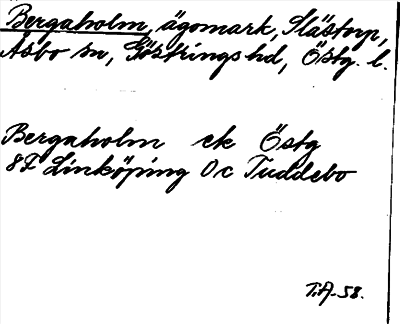 Bergaholm, ägomark, Slästorp,
Åsbo sn, Göstrings hd, Östg. l.
Bergaholm ek Östg
8F Linköping 0c Tuddebo
T.A.-58.